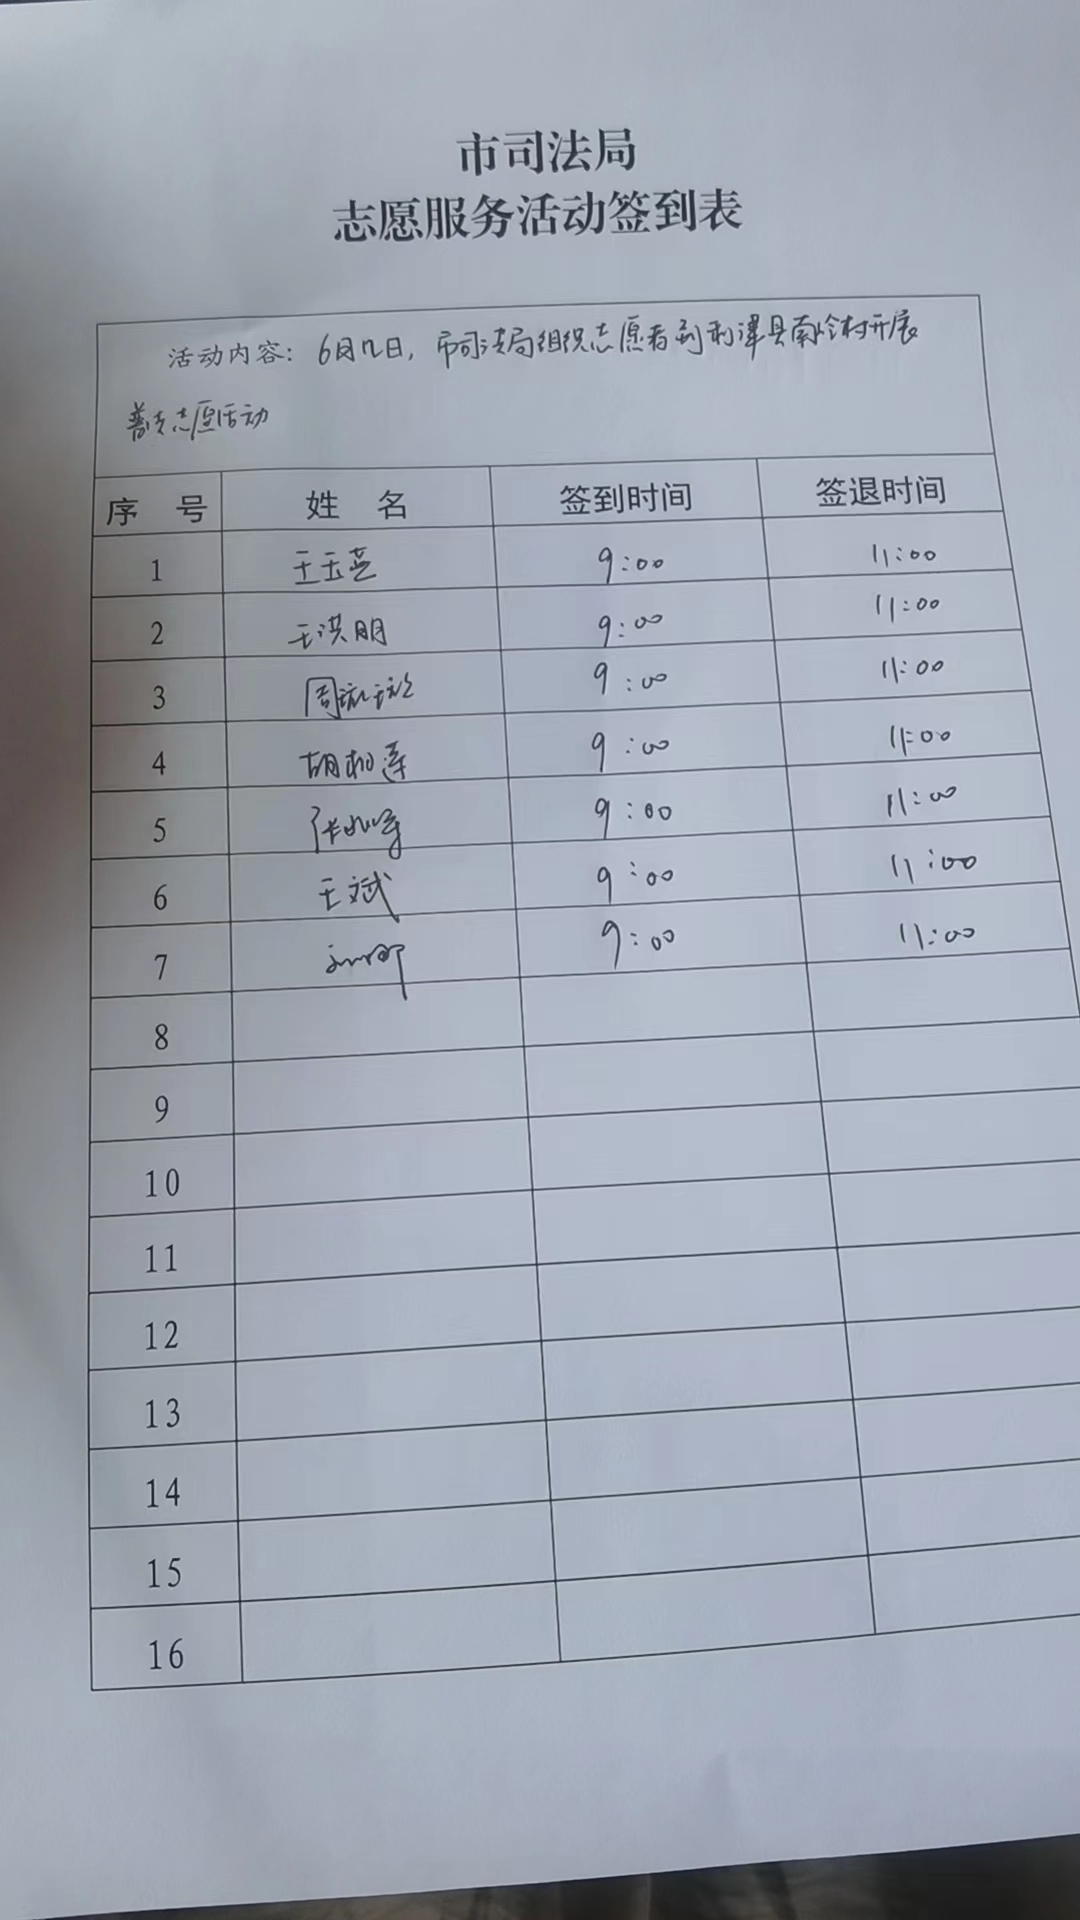 市司法局
志愿服务活动签到表
活动内容：6月12日，市司法局组织志愿者到利津县南岭村开展
普法志愿活动
序 号 姓 名 签到时间 签退时间
1 王玉芝 9:00 11:00
2 王洪明 9:00 11:00
3 周 9:00 11:00
4 胡相莲 9:00 11:00
5 张 9:00 11:00
6 王斌 9:00 11:00
7 9:00 11:00
8
9
10
11
12
13
14
15
16